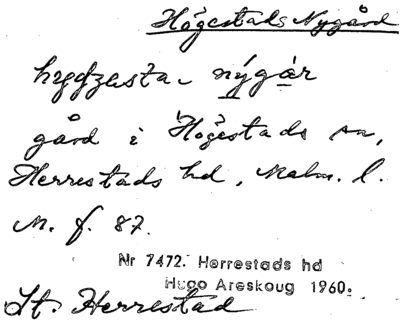 Högestads Nygård
nýgår
gård i Högestads sn,
Herrestads hd, Malm. l.
M. f. 87.
Nr 7472. Herrestads hd
Hugo Areskoug 1960.
St. Herrestad